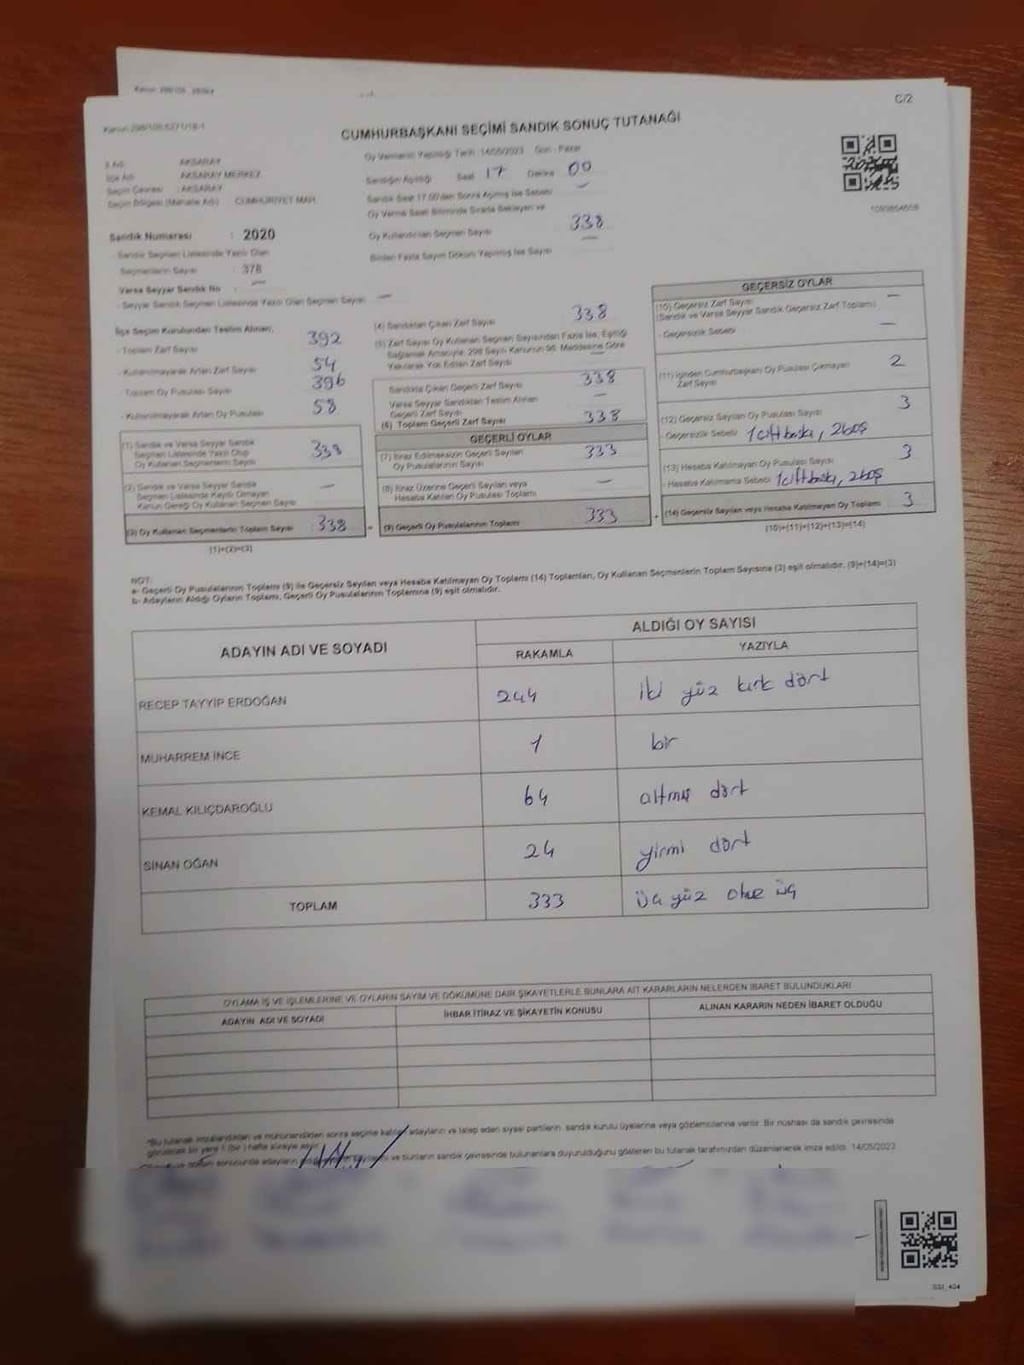 C/2
CUMHURBAŞKANI SEÇİMİ SANDIK SONUÇ TUTANAĞI
İl Adı : AKSARAY
İlçe Adı : AKSARAY MERKEZ
Seçim Çevresi : AKSARAY
Seçim Bölgesi (Mahalle Adı) : CUMHURİYET MAH.
Sandık Numarası : 2020
- Sandık Seçmen Listesinde Yazılı Olan
Seçmenlerin Sayısı : 378
Varsa Seyyar Sandık No : —
- Seyyar Sandık Seçmen Listesinde Yazılı Olan Seçmen Sayısı : —
Oy Vermenin Yapıldığı Tarih :14/05/2023 Gün : Pazar
Sandığın Açıldığı Saat 17 Dakika 00
Sandık Saat 17.00'den Sonra Açılmış İse Sebebi —
Oy Verme Saati Bitiminde Sırada Bekleyen ve
Oy Kullandırılan Seçmen Sayısı 338
Birden Fazla Sayım Döküm Yapılmış İse Sayısı —
İlçe Seçim Kurulundan Teslim Alınan,
- Toplam Zarf Sayısı 392
- Kullanılmayarak Artan Zarf Sayısı 54
- Toplam Oy Pusulası Sayısı 396
- Kullanılmayarak Artan Oy Pusulası 58
(1) Sandık ve Varsa Seyyar Sandık
Seçmen Listesinde Yazılı Olup
Oy Kullanan Seçmenlerin Sayısı 338
(2) Sandık ve Varsa Seyyar Sandık
Seçmen Listesinde Kayıtlı Olmayan
Kanun Gereği Oy Kullanan Seçmen Sayısı —
(3) Oy Kullanan Seçmenlerin Toplam Sayısı 338
(1)+(2)=(3)
(4) Sandıktan Çıkan Zarf Sayısı 338
(5) Zarf Sayısı Oy Kullanan Seçmen Sayısından Fazla İse, Eşitliği
Sağlamak Amacıyla; 298 Sayılı Kanunun 98. Maddesine Göre
Yakılarak Yok Edilen Zarf Sayısı —
Sandıkta Çıkan Geçerli Zarf Sayısı 338
Varsa Seyyar Sandıktan Teslim Alınan
Geçerli Zarf Sayısı —
(6) Toplam Geçerli Zarf Sayısı 338
GEÇERLİ OYLAR
(7) İtiraz Edilmeksizin Geçerli Sayılan
Oy Pusulalarının Sayısı 333
(8) İtiraz Üzerine Geçerli Sayılan veya
Hesaba Katılan Oy Pusulası Toplamı —
(9) Geçerli Oy Pusulalarının Toplamı 333
GEÇERSİZ OYLAR
(10) Geçersiz Zarf Sayısı —
(Sandık ve Varsa Seyyar Sandık Geçersiz Zarf Toplamı)
- Geçersizlik Sebebi —
(11) İçinden Cumhurbaşkanı Oy Pusulası Çıkmayan
Zarf Sayısı 2
(12) Geçersiz Sayılan Oy Pusulası Sayısı 3
- Geçersizlik Sebebi 1 çift baskı, 2 boş
(13) Hesaba Katılmayan Oy Pusulası Sayısı 3
- Hesaba Katılmama Sebebi 1 çift baskı, 2 boş
(14) Geçersiz Sayılan veya Hesaba Katılmayan Oy Toplamı 3
(10)+(11)+(12)+(13)=(14)
NOT:
a- Geçerli Oy Pusulalarının Toplamı (9) ile Geçersiz Sayılan veya Hesaba Katılmayan Oy Toplamı (14) Toplamları, Oy Kullanan Seçmenlerin Toplam Sayısına (3) eşit olmalıdır. (9)+(14)=(3)
b- Adayların Aldığı Oyların Toplamı, Geçerli Oy Pusulalarının Toplamına (9) eşit olmalıdır.
ADAYIN ADI VE SOYADI ALDIĞI OY SAYISI
RAKAMLA YAZIYLA
RECEP TAYYİP ERDOĞAN 244 iki yüz kırk dört
MUHARREM İNCE 1 bir
KEMAL KILIÇDAROĞLU 64 altmış dört
SİNAN OĞAN 24 yirmi dört
TOPLAM 333 üç yüz otuz üç
OYLAMA İŞ VE İŞLEMLERİNE VE OYLARIN SAYIM VE DÖKÜMÜNE DAİR ŞİKAYETLERLE BUNLARA AİT KARARLARIN NELERDEN İBARET BULUNDUKLARI
ADAYIN ADI VE SOYADI İHBAR İTİRAZ VE ŞİKAYETİN KONUSU ALINAN KARARIN NEDEN İBARET OLDUĞU
*Bu tutanak imzalandıktan ve mühürlendikten sonra seçime katılan adayların ve talep eden siyasi partilerin, sandık kurulu üyelerine veya gözlemcilerine verilir. Bir nüshası da sandık çevresinde
görülecek bir yere 1 (bir) hafta süreyle asılır.
ve bunların sandık çevresinde bulunanlara duyurulduğunu gösteren bu tutanak tarafımızdan düzenlenerek imza edildi. 14/05/2023